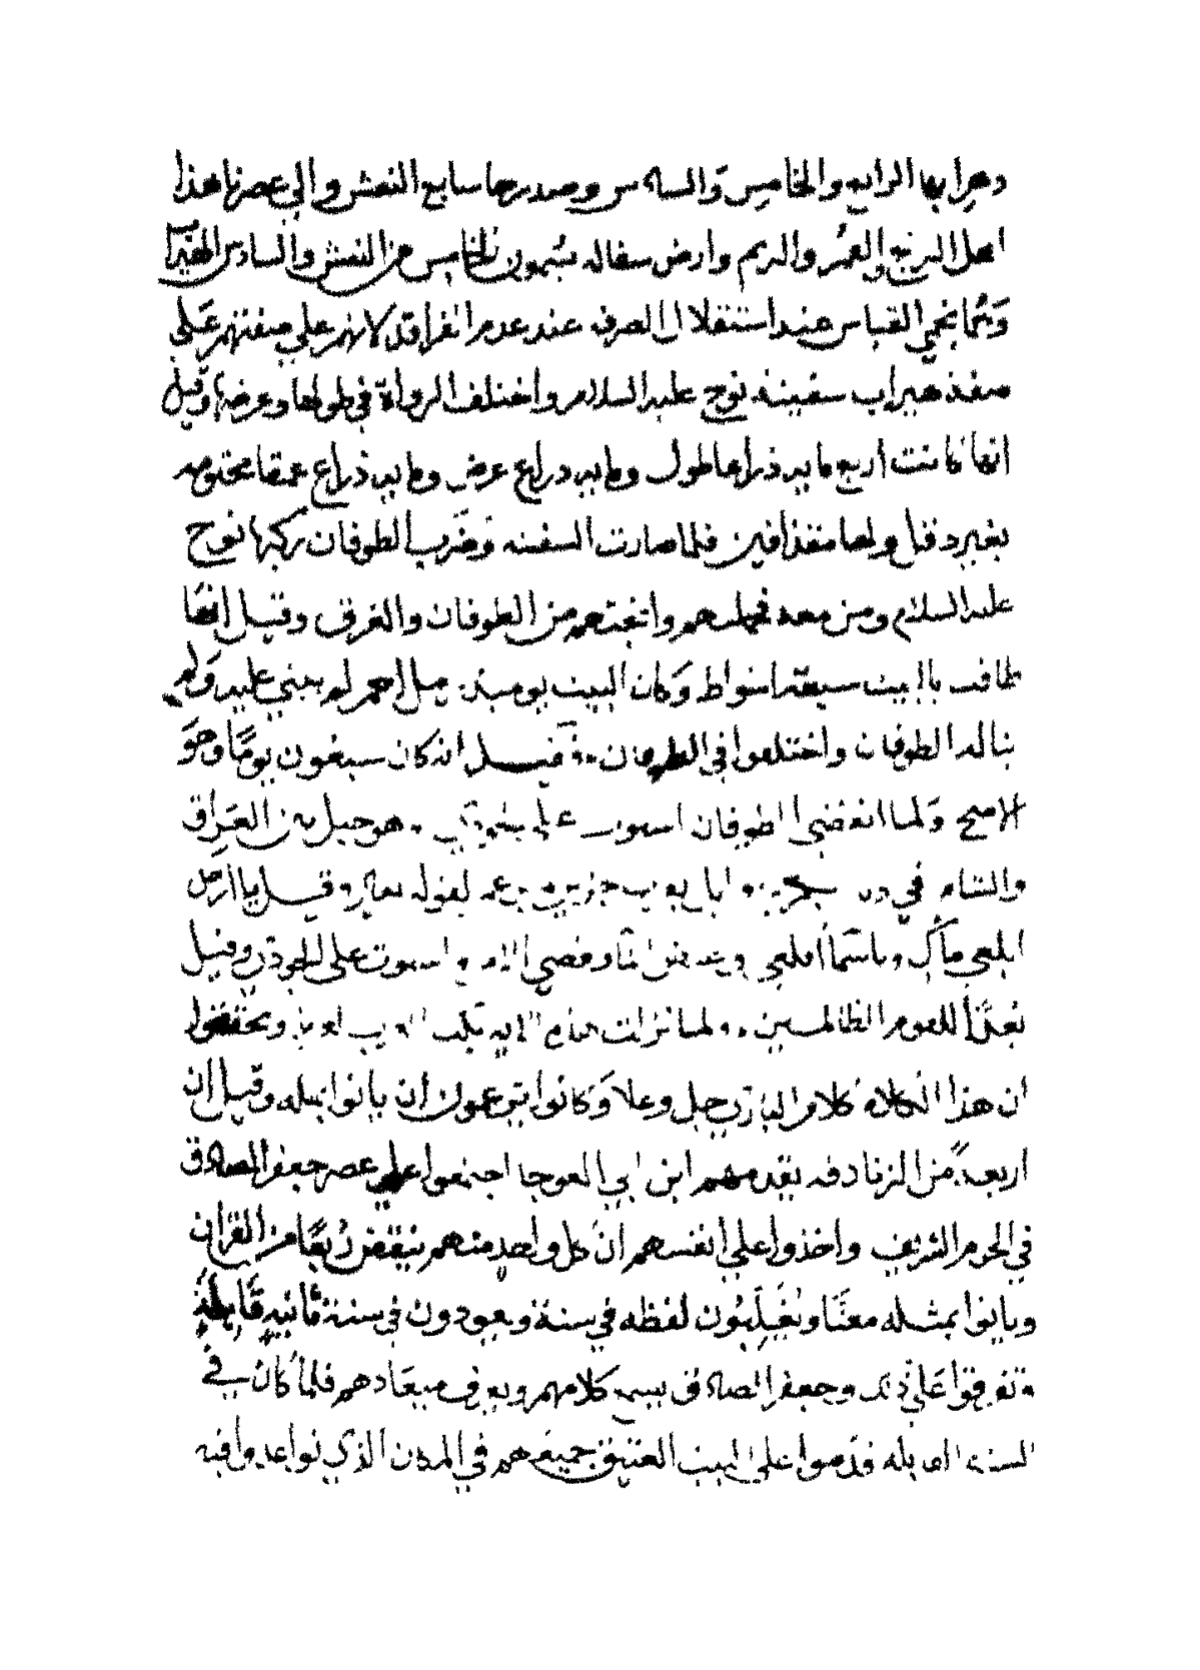 وهيرابها الرابع والخامس والسادس وصدرها سابع النعش والي عصرنا هذا
اهل الزنج والقمر والريم وارض سفاله يسمون الخامس من النعش والسادس الهيراب
وسما بنجمي القياس عند استقلال الصرفه عند عدم الفراقد لانهم علي صفتهم علي
صفة هيراب سفينة نوح عليه السلام واختلف الرواة في طولها وعرضها وقيل
انها كانت اربع مايه ذراعا طول ومايه ذراع عرض ومايه ذراع عمقا مختومه
بغير دقل ولها مقذافين فلما صارت السفينه وضرب الطوفان ركبها نوح
عليه السلام ومن معه فحملتهم وانجتهم من الطوفان والغرق وقيل انها
طافت بالبيت سبعة اشواط وكان البيت يوميذ ميل احمر لم يبني عليه ولم
يناله الطوفان واختلفوا في الطوفان قيل انه كان سبعون يوما وهو
الاصح ولما انقضي الطوفان استوت علي هو جبل بين العراق
والشام في لقوله تعالى وقيل يا ارض
ابلعي ماك وياسما اقلعي وغيض الما وقضي الامر واستوت على الجودي وقيل
بعدا للقوم الظالمين ولما نزلت هذه الايه وتحققوا
ان هذا الكلام كلام الباري جل وعلا وكانوا يزعمون ان ياتوا بمثله وقيل ان
اربعة من الزنادقه يقدمهم ابن ابي العوجا اجتمعوا علي عصر جعفر الصادق
في الحرم الشريف واخذوا علي انفسهم ان كل واحد منهم ينقض ربعا من القران
وياتوا بمثله معنا ويغلبون لفظه في سنة ويعودون في سنة ثانيه قابلة
وتفرقوا على ذلك وجعفر الصادق يسمع كلامهم ويعرف ميعادهم فلما كان في
السنة القابله قدموا على البيت العتيق جميعهم في المكان الذي تواعدوا فيه